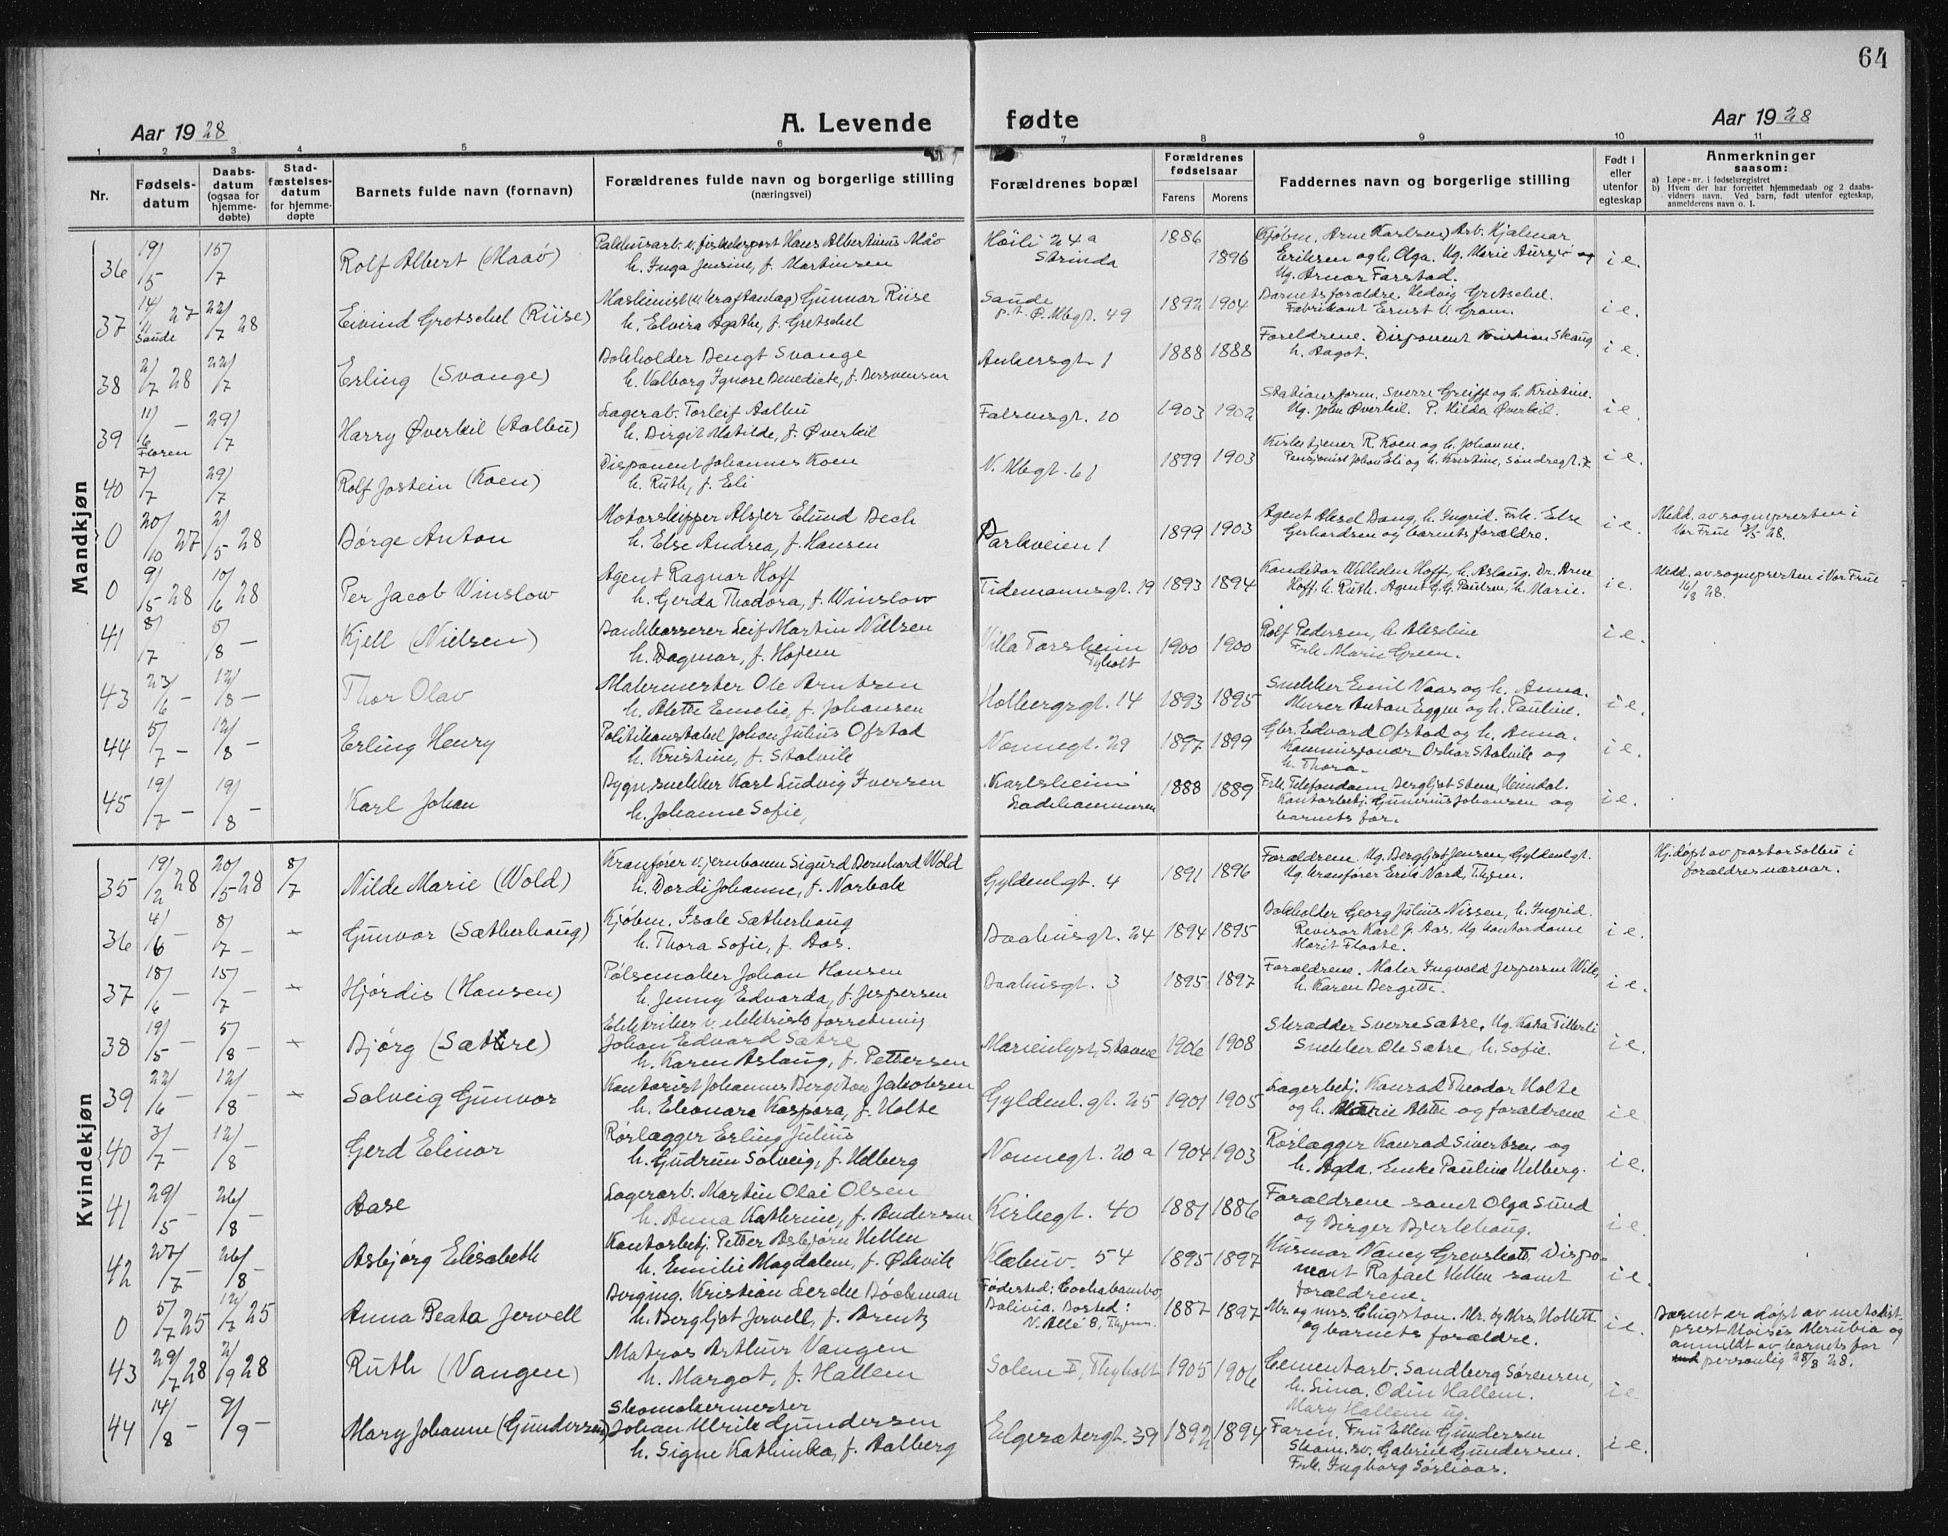 64
Aar 1928
A. Levende
fødte
Aar 1928
1 2 3 4 5 6 7 8 9 10 11
Nr.
Fødselsdatum
Daabsdatum (ogsaa for hjemmedøbte)
Stadfæstelsesdatum for hjemmedøpte
Barnets fulde navn (fornavn)
Forældrenes fulde navn og borgerlige stilling (næringsvei)
Forældrenes bopæl
Forældrenes fødselsaar
Farens Morens
Faddernes navn og borgerlige stilling
Født i eller utenfor egteskap
Anmerkninger saasom:
a) Løpe-nr. i fødselsregistret
b) Hvem der har forrettet hjemmedaab og 2 daabsvidners navn. Ved barn, født utenfor egteskap, anmelderens navn o. l.
Mandkjøn
36 19/5 15/7 Rolf Albert (Maaø)
h. Inga Jensine, f. Martinsen
Høili 24a
Strinda
1886 1896
Eriksen og h. Olga. Ug. Marie Aursjø og
Ug. Arnar Farstad.
i e.
37 14/11 27 Sande 22/7 28 Eivind Gretschel (Riise)
Maskinist (v/ kraftanlæg) Gunnar Riise
h. Elvira Agathe, f. Gretschel
Sande
1892 1904
Barnets forældre. Hedvig Gretschel.
Fabrikant Ernst V. Gram.
i e.
38 2/7 28 22/7 Erling (Svange)
Bokholder Bengt Svange
Ankersgt 1
1888 1888
Forældrene. Disponent Kristian Skaug
h. Aagot.
i e.
39 11/6 - Floren 29/7 Harry Øverkil (Aalbu)
Lagerarb. Torleif Aalbu
h. Birgit Matilde, f. Øverkil
Falsensgt. 10
1903 1902
Stationsform. Sverre Greiff og h. Kristine.
Ug. John Øverkil. P. Hilda Øverkil.
i e.
40 7/7 29/7 Rolf Jostein (Koen)
Disponent Johannes Koen
h. Ruth, f. Eli
V. Mbgt. 61
1899 1903
Kirketjener R. Koen og h. Johanne.
Pensjonist Johan Eli og h. Kristine, Søndregt. 7
i e.
0 20/10 27 2/5 28 Børge Anton
h. Else Andrea, f. Hansen
Parkveien 1
1899 1903
Agent Aksel Bang, h. Ingrid. Frk. Else
Gerhardsen og barnets forældre.
i e.
Medd. av sognepresten i
Vor Frue 2/5 28.
0 9/5 28 10/6 28 Per Jacob Winslow
Agent Ragnar Hoff
h. Gerda Thodora, f. Winslow
Tidemannsgt. 19
1893 1894
Konditor Wilhelm Hoff, h. Aslaug. Dr. Arne
Hoff, h. Ruth. Agent G. G. Paulsen, h. Marie.
i e.
Medd. av sognepresten i Vor Frue
16/8 28.
41 8/7 5/8 - Kjell (Nielsen)
Bankkasserer Leif Martin Nillsen
h. Dagmar, f. Hojem
Villa Forsheim
Tyholt
1900 1900
Rolf Pedersen, h. Alexline
Frk. Marie Green.
i e.
43 23/6 - 12/8 - Thor Olav
Malermester Ole Arntsen
h. Alette Emelie, f. Johansen
Holbergsgt. 14
1893 1895
Snekker Emil Naas og h. Anna.
Murer Anton Eggen og h. Pauline.
i e.
44 5/7 - 12/8 - Erling Henry
Politikonstabel Johan Julius Ofstad
h. Kristine, f. Stalvik
Nonnegt. 29
1897 1899
Gbr. Edvard Ofstad og h. Anna.
Kommisjonær Oskar Stalvik og
h. Thora.
i e.
45 19/7 - 19/8 - Karl Johan
Bygn.snekker Karl Ludvig Iversen
h. Johanne Sofie,
Karlsheim
Ladehammeren
1888 1889
Frk. Telefondame Bergljot Stene, Heimdal.
Kontorbetj. Gunerius Johansen og
barnets far.
i e.
Kvindekjøn
35 19/2 28 20/5 28 8/7 Nilde Marie (Wold)
Kranfører v/jernbanen Sigurd Bernhard Wold
h. Bordi Johanne, f. Norbak
Gyldenl.gt. 4
1891 1896
Forældrene. Ug. Bergljot Jensen, Gyldenl.gt.
Ug. kranfører Erik Nord, Thjem.
i e.
Hj.døpt av pastor Solbu i
forældres nærvær.
36 4/6 - 8/7 - Gunvor (Sætherhaug)
Kjøbm. Isak Sætherhaug
h. Thora Sofie, f. Aas.
Baahusgt. 24
1894 1895
Bokholder Georg Julius Nissen, h. Ingrid.
Revisor Karl J. Aas. Ug kontordame
Marit Flaate.
i e.
37 18/6 - 15/7 - Hjørdis (Hansen)
Pølsemaker Johan Hansen
h. Jenny Edvarda, f. Jespersen
Baahusgt. 3
1895 1897
Forældrene. Maler Ingvald Jespersen Wiik,
h. Karen Bergette.
i e.
38 19/5 - 5/8 - Bjørg (Sætre)
Elektriker v. elektrisk forretning
Johan Edvard Sætre
h. Karen Aslaug, f. Pettersen
Marienlyst, Stavne
1906 1908
Skrædder Sverre Sætre. Ug. Kara Tillerli
Snekker Ole Sætre, h. Sofie.
i e.
39 22/6 - 12/8 - Solveig Gunvor
Kontorist Johannes Bergiton Jakobsen
h. Eleonora Kaspara, f. Holte
Gyldenl.gt. 25
1901 1905
Lagerbetj. Konrad Theodor Holte
og h. Marie Alette og forældrene
i e
40 3/7 - 12/8 - Gerd Elinor
Rørlægger Erling Julius
h. Gudrun Solveig, f. Helberg
Nonnegt. 20a
1904 1903
Rørlægger Konrad Sivertsen og
h. Agda. Enke Pauline Helberg.
i e.
41 29/5 - 26/8 - Aase
Lagerarb. Martin Olai Olsen
h. Anna Kathrine, f. Andersen
Kirkegt. 40
1881 1886
Forældrene samt Olga Sund
og Birger Bjerkehaug.
i e
42 27/7 - 26/8 - Asbjørg Elisabeth
Kontorbetj. Petter Asbjørn Hellen
h. Emilie Magdalene, f. Ølsvik
Klæbuv. 54
1895 1897
Husmor Nancy Grevskott, Dispo-
nent Rafael Hellen samt
forældrene.
i e.
0 5/7 25 12/7 25 Anna Beata Jervell
Berging. Kristian Lerche Bøckman
h. Bergljot Jervell, f. Brentz
Fødested: Cochabamba
Bolivia. Bosted:
V. Allé 8, Thjem.
1887 1897
Mr. og mrs. Chigston. Mr. og Mrs. Hollett
og barnets forældre.
i e.
Barnet er døpt av metodist-
prest Moisés Merubia og
anmeldt av barnets far
personlig 28/8 28.
43 29/7 28 2/9 28 Ruth (Vangen)
Matros Arthur Vangen
h. Margot, f. Hallem
Solem II, Thyholt
1905 1906
Cementarb. Sandberg Sørensen,
h. Sina. Odin Hallem.
Mary Hallem ug.
i e
44 14/8 - 9/9 - Mary Johanne (Gundersen)
Skomakermester
Johan Ulrik Gundersen
h. Signe Kathinka, f. Aalberg
Elgesætergt. 39
1892 1894
Faren. Fru Ellen Gundersen
Skom.sv. Gabriel Gundersen.
Frk. Ingborg Sørliaas.
i e.